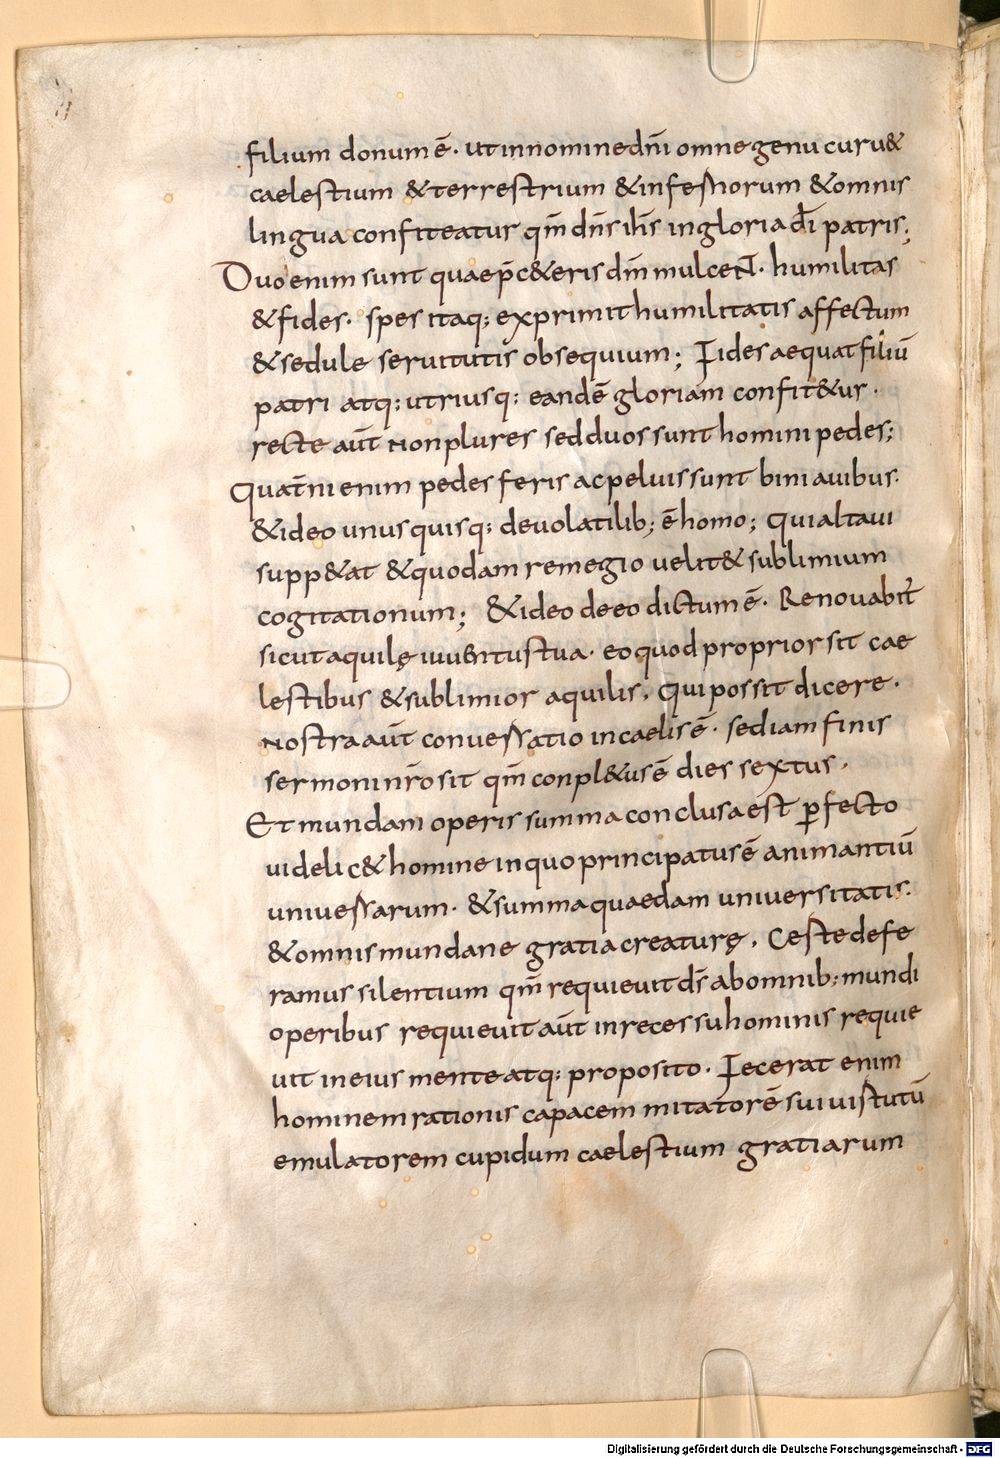 filium donum ē. ut in nomine dn̄i omne genu curu&
caelestium & terrestrium & infernorum & omnis
lingua confiteatur qm̄ dn̄s ih̄s in gloria dī patris;
Duo enim sunt quae p̄ c&eris dm̄ mulcent. humilitas
& fides. spes itaq; exprimit humilitatis affectum
& sedule seruitutis obsequium; Fides aequat filiū
patri atq; utriusq; eandē gloriam confit&ur.
recte aūt non plures sed duos sunt homini pedes;
Quat̄ni enim pedes feris ac peluis sunt bini auibus.
& ideo unus quisq; de uolatilib; ē homo; qui alta ui
supp&at & quodam remegio uelit& sublimium
cogitationum; & ideo de eo dictum ē. Renouabit̄
sicut aquilę iuuentus tua. eo quod proprior sit cae
lestibus & sublimior aquilis. qui possit dicere.
nostra aūt conuersatio in caelis ē. sed iam finis
sermoni nr̄o sit qm̄ conpl&us ē dies sextus.
Et mundam operis summa conclusa est ꝑfecto
uidelic& homine in quo principatus ē animantiū
uniuersarum. & summa quaedam uniuersitatis.
& omnis mundane gratia creaturę. Ceste defe
ramus silentium qm̄ requieuit ds̄ ab omnib; mundi
operibus requieuit aūt in recessu hominis requie
uit in eius mente atq; proposito. Fecerat enim
hominem rationis capacem mitatorē sui uirtutū
emulatorem cupidum caelestium gratiarum
Digitalisierung gefördert durch die Deutsche Forschungsgemeinschaft - DFG